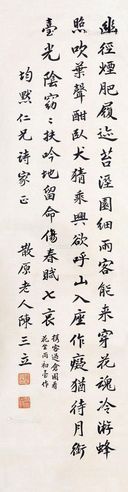 幽徑煙肥履迹苔溼園細雨客能來穿花魂冷游蜂
照吠葉聲酣臥犬猜乘興欲呼山入座作癡猶待月銜
臺光陰窈〻扶吟地留命傷春賦七哀
携客過倉園看
均默仁兄詩家正
散原老人陳三立